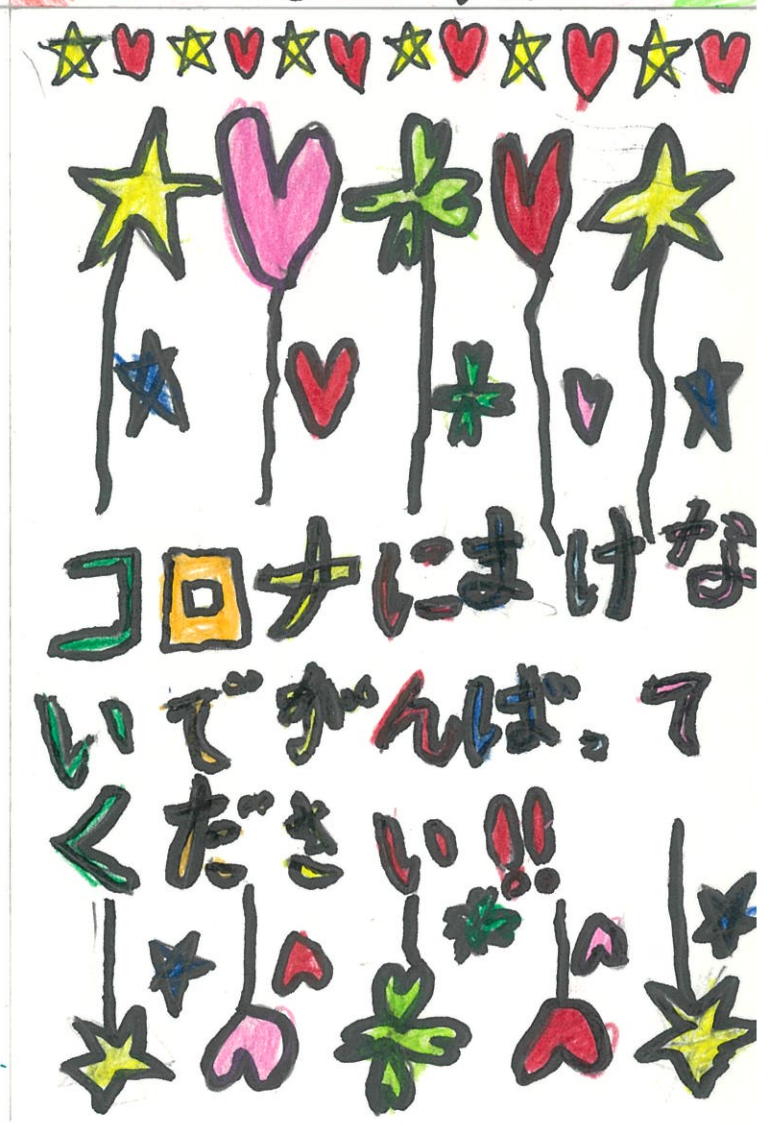 コロナにまけな
いでがんばって
ください!!